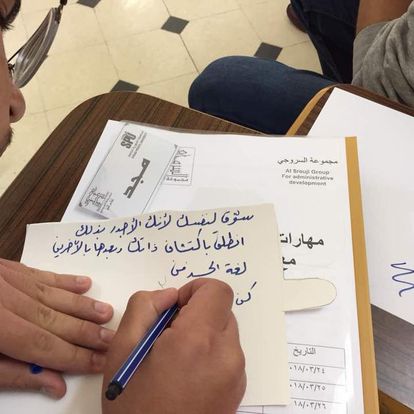 SPU
مجد
مجموعة السروجي
Al Srouji Group
For administrative
development
مهارات
التاريخ
٢٠١٨/٠٣/٢٤
٠١٨/٠٣/٢٥
٠١٨/٠٣/٢٦
سوّق لنفسك لأنك الأجدر بذلك
انطلق باكتشاف ذاتك وبعدها بالآخرين
لغة الجسد فن
كن